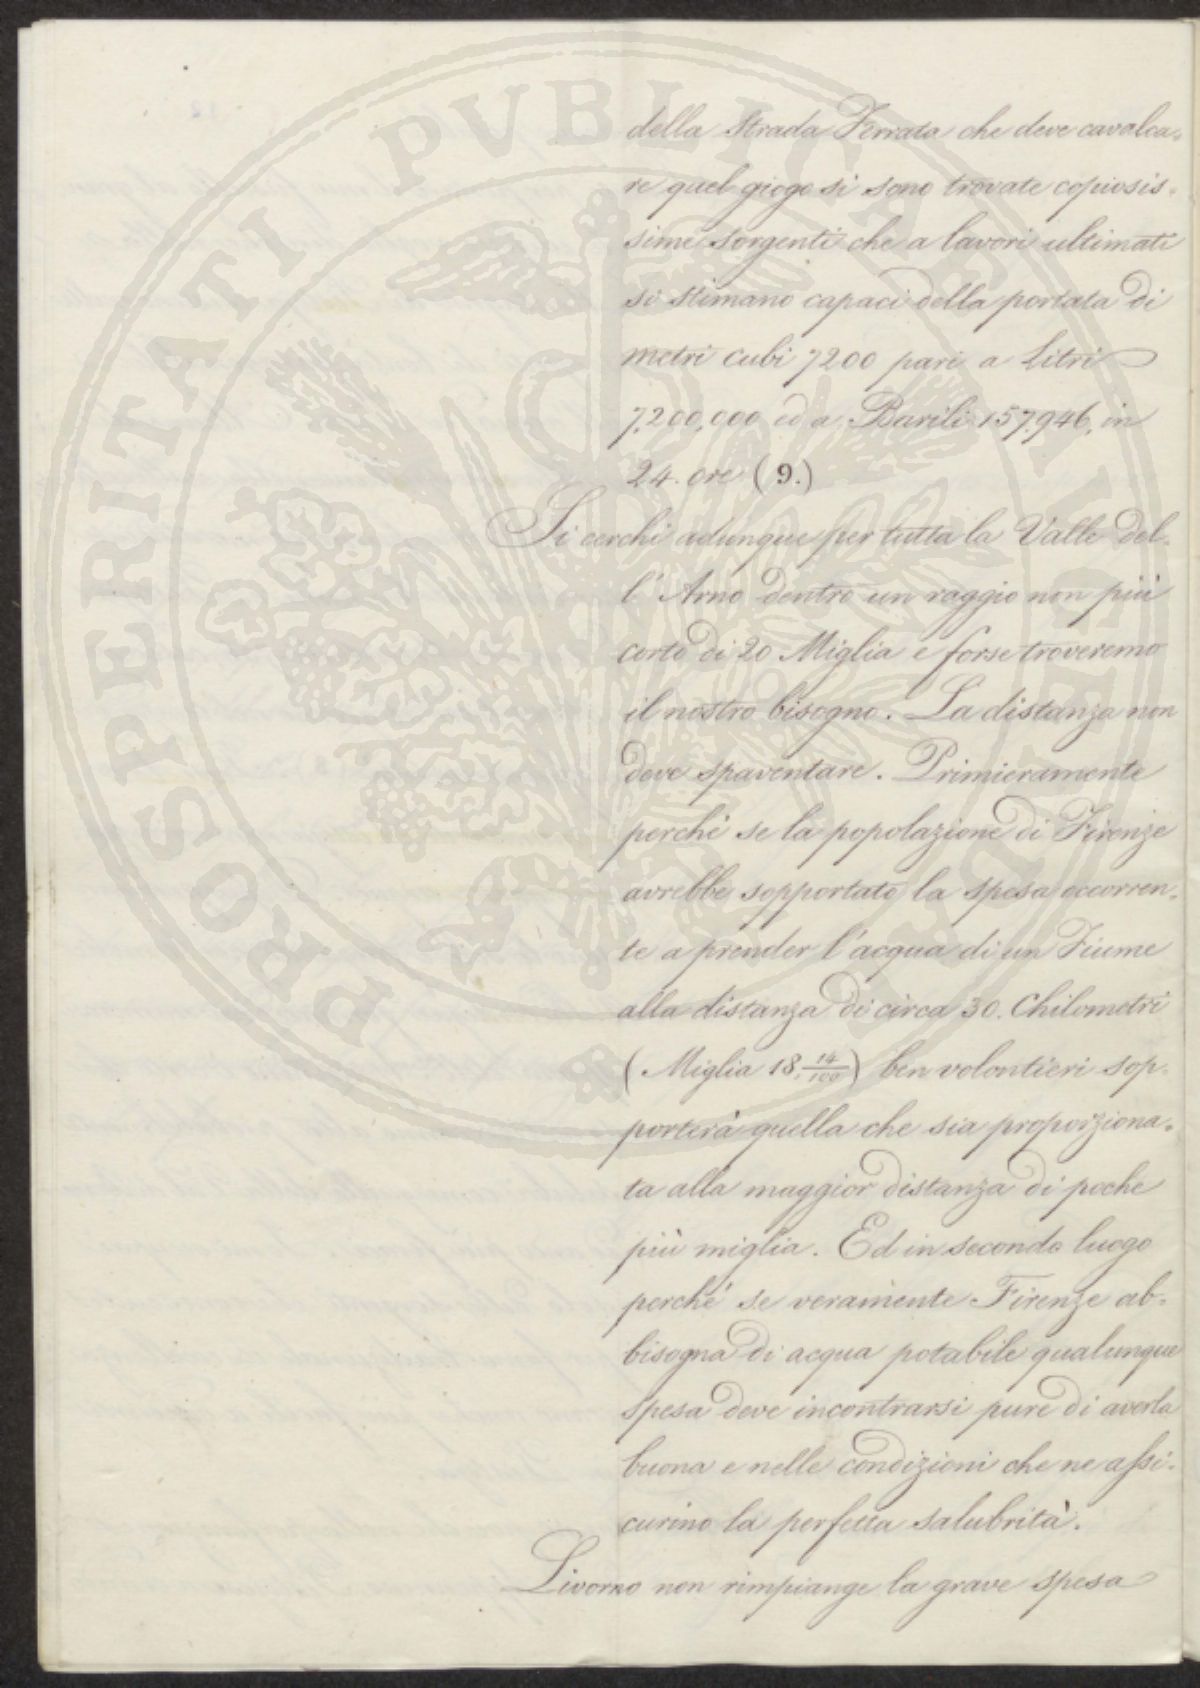 della Strada Ferrata che deve cavalca-
re quel giogo si sono trovate copiosis-
sime sorgenti che a lavori ultimati
si stimano capaci della portata di
metri cubi 7200 pari a Litri
7,200,000 ed a Barili 157,946, in
24. ore (9.)
Si cerchi adunque per tutta la Valle del-
l'Arno dentro un raggio non più
corto di 20 Miglia e forse troveremo
il nostro bisogno. La distanza non
deve spaventare. Primieramente
perchè se la popolazione di Firenze
avrebbe sopportato la spesa occorren-
te a prender l'acqua di un Fiume
alla distanza di circa 30. Chilometri
(Miglia 18, 14/100) ben volontieri sop-
porterà quella che sia proporziona-
ta alla maggior distanza di poche
più miglia. Ed in secondo luogo
perchè se veramente Firenze ab-
bisogna di acqua potabile qualunque
spesa deve incontrarsi pure di averla
buona e nelle condizioni che ne assi-
curino la perfetta salubrità.
Livorno non rimpiange la grave spesa
PROSPERITATI PVBLICAE